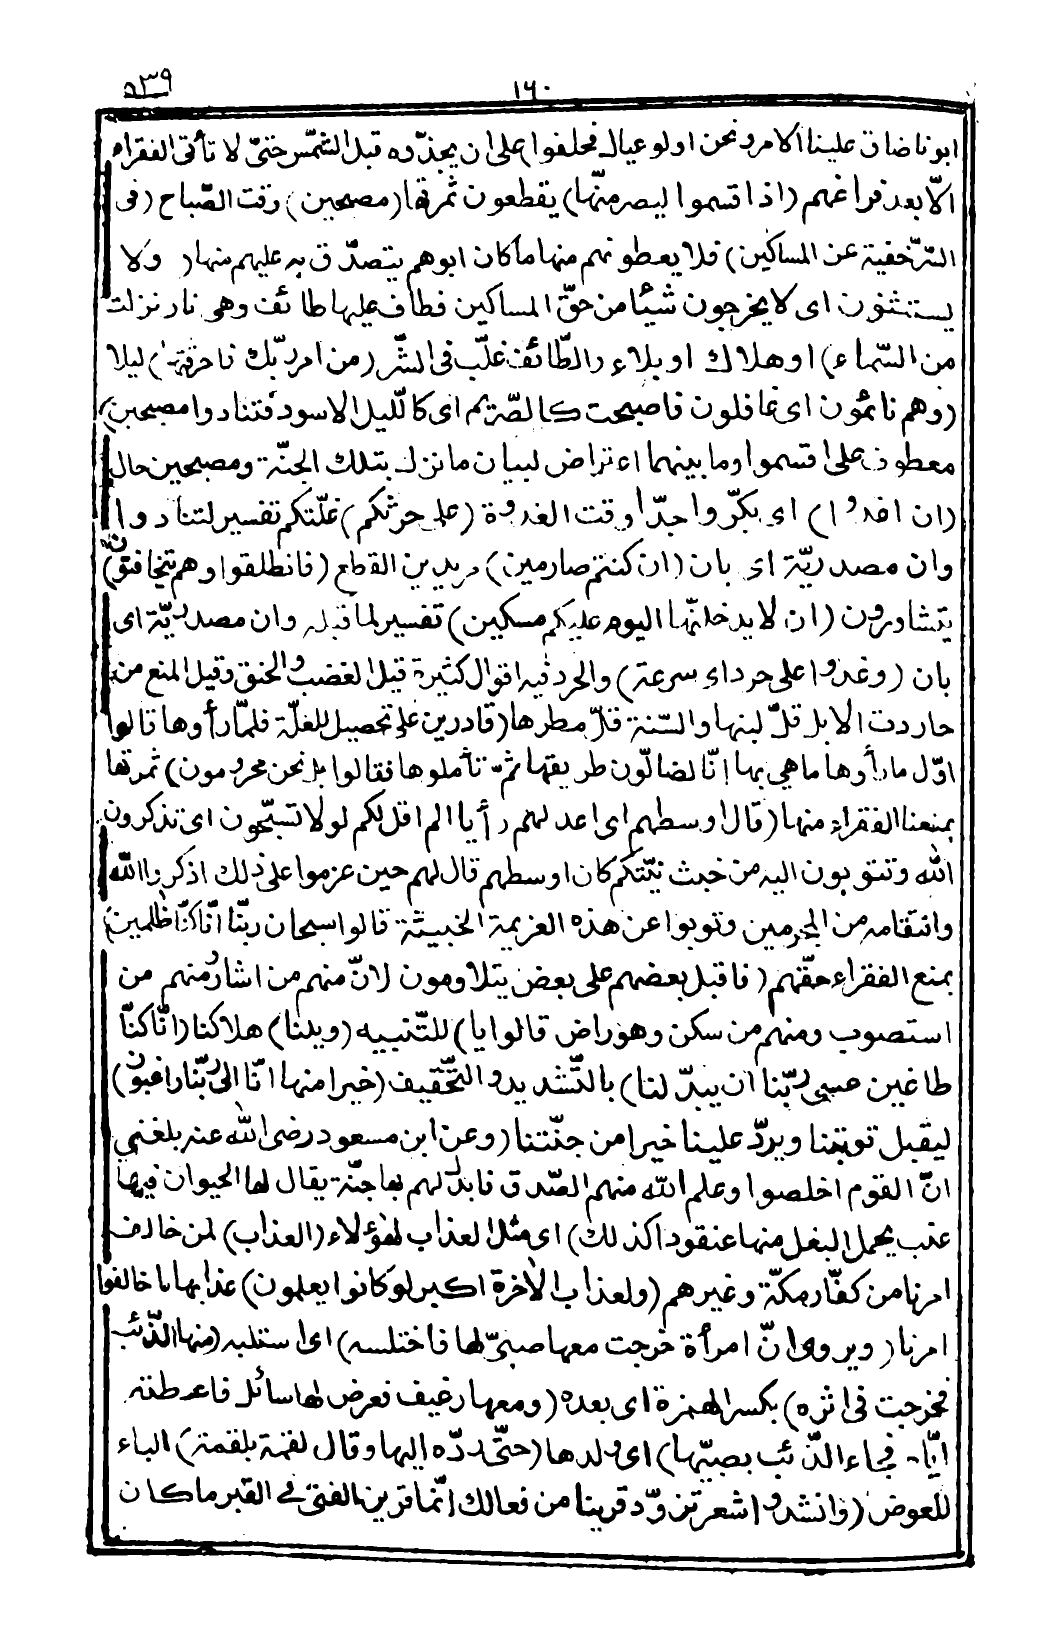 ٥٣٩
١٦٠
ابونا ضاق علينا الامر ونحن اولو عيال فحلفوا على ان يجذّوه قبل الشمس حتىّ لا تأتى الفقراء
الاّ بعد فراغهم (اذا قسموا ليصرمنّها) يقطعون ثمرتها (مصبحين) وقت الصّباح (فى
السّر خفية عن المساكين) فلا يعطونهم منها ما كان ابوهم يتصدّق به عليهم منها (ولا
يستثنون اى لا يخرجون شيئا من حقّ المساكين فطاف عليها طائف وهى نار نزلت
من السّماء) او هلاك او بلاء والطّائف غلّب فى الشّر (من امر ربّك ناحرقته) ليلا
(وهم نائمون اى غافلون فاصبحت كالصّريم اى كاللّيل الاسود فتنادوا مصبحين)
معطوف على اقسموا وما بينهما اعتراض لبيان ما نزل بتلك الجنّة ومصبحين حال
(ان اغدوا) اى بكرّوا جدّا وقت الغدوة (على حرثكم) غلّتكم تفسير لتنادوا
وان مصدريّة اى بان (ان كنتم صارمين) مريدين القطع (فانطلقوا وهم يتخافتون)
يتشاورون (ان لا يدخلنّها اليوم عليكم مسكين) تفسير لما قبله وان مصدريّة اى
بان (وغدوا على حرد اى سرعة) والحرد فيه اقوال كثيرة قيل الغضب والحنق وقيل المنع من
حاردت الابل قلّ لبنها والسّنة قلّ مطرها (قادرين على تحصيل للغلّة فلمّا رأوها قالوا
اوّل ما رأوها ما هى بها إنّا لضالّون طريقها ثمّ تأملوها فقالوا بل نحن محرومون) ثمرتها
بمنعنا الفقراء منها (قال اوسطهم اى اعدلهم رأيا الم اقل لكم لولا تسبّحون اى تذكرون
الله وتتوبون اليه من خبث نيّتكم كان اوسطهم قال لهم حين عزموا على ذلك اذكروا الله
وانتقامه من المجرمين وتوبوا عن هذه العزيمة الخبيثة قالوا سبحان ربّنا انّا كنّا ظلمين)
بمنع الفقراء حقّهم (فاقبل بعضهم على بعض يتلاومون لانّ منهم من اشار ومنهم من
استصوب ومنهم من سكن وهو راض قالوا يا) للتّنبيه (ويلنا) هلاكنا (انّا كنّا
طاغين عسى ربّنا ان يبدّلنا) بالتّشديد والتّخفيف (خيرا منها انّا الى ربّنا راغبون)
ليقبل توبتنا ويردّ علينا خيرا من جنّتنا (وعن ابن مسعود رضى الله عنه بلغنى
انّ القوم اخلصوا وعلم الله منهم الصّدق فابدلهم بها جنّة يقال لها الحيوان فيها
عنب يحمل البغل منها عنقودا كذلك) اى مثل العذاب لهؤلاء (العذاب) لمن خالف
امرنا من كفّار مكّة وغيرهم (ولعذاب الاخرة اكبر لو كانوا يعلمون) عذابها ما خالفوا
امرنا (ويروى انّ امرأة خرجت معها صبىّ لها فاختلسه) اى استلبه (منها الذّئب
فخرجت فى اثره) بكسر الهمزة اى بعده (ومعها رغيف فعرض لها سائل فاعطته
ايّاه فجاء الذّئب بصبيّها) اى ولدها (حتّى ردّه اليها وقال لقمة بلقمة) الباء
للعوض (وانشدوا شعر تزوّد قرينا من فعالك إنّما قرين الفتى فى القبر ما كان